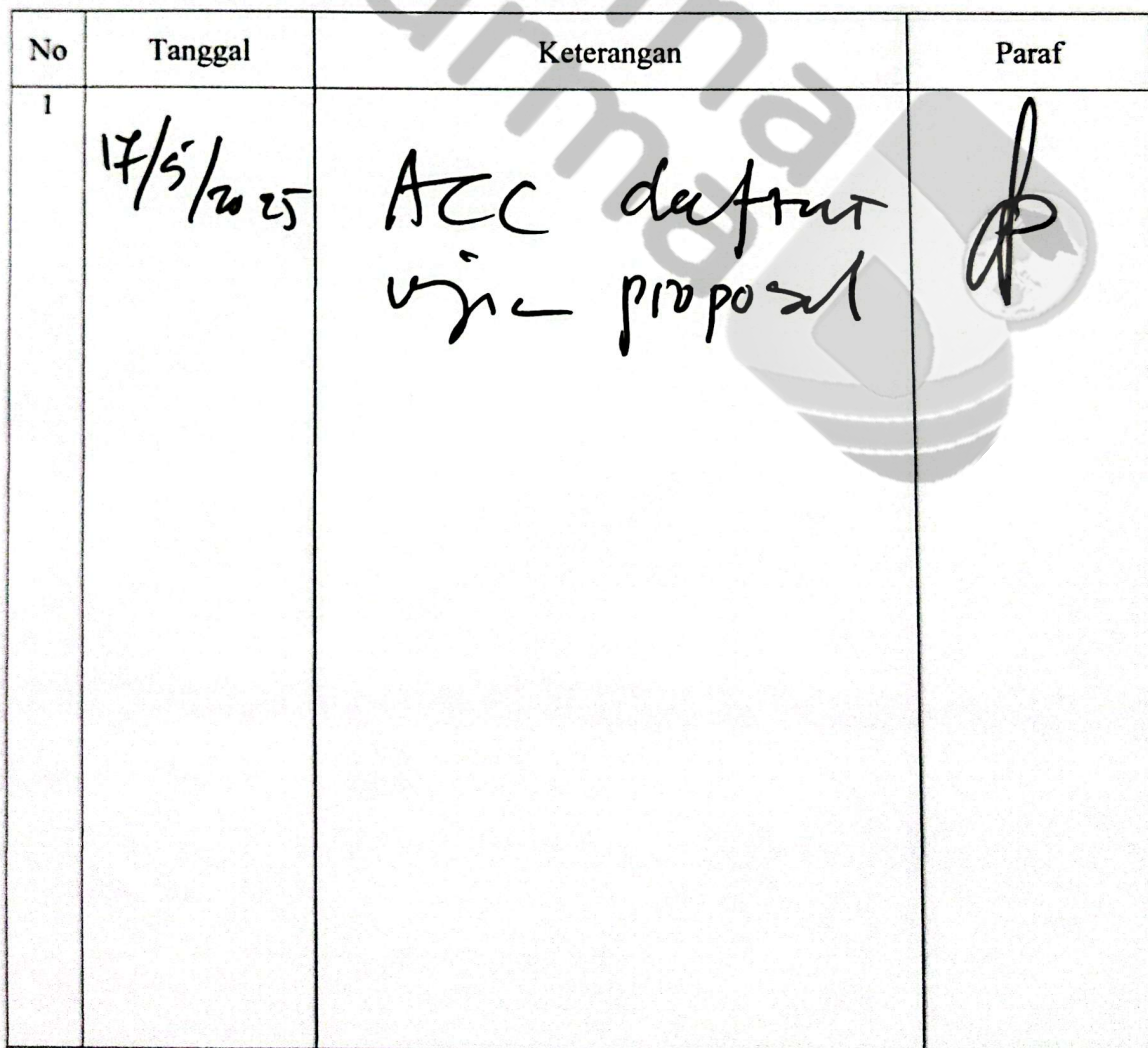 No Tanggal Keterangan Paraf
1
17/5/2025 ACC daftar
ujian proposal